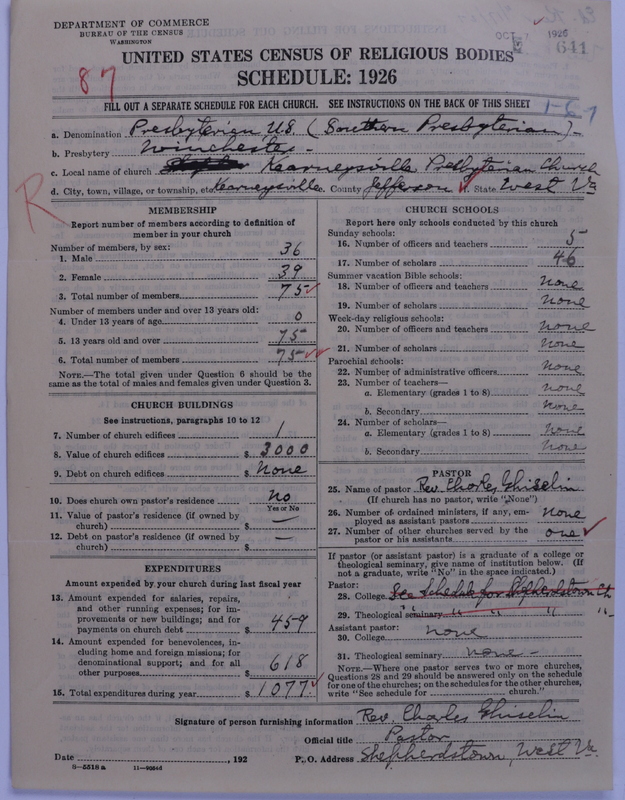 DEPARTMENT OF COMMERCE
BUREAU OF THE CENSUS
WASHINGTON
OCT 1926
641
UNITED STATES CENSUS OF RELIGIOUS BODIES
SCHEDULE: 1926
87
FILL OUT A SEPARATE SCHEDULE FOR EACH CHURCH. SEE INSTRUCTIONS ON THE BACK OF THIS SHEET
a. Denomination Presbyterian U.S. (Southern Presbyterian)
b. Presbytery Winchester
c. Local name of church Kearneysville Presbyterian Church
d. City, town, village, or township, etc. Kearneysville. County Jefferson State West Va
R
MEMBERSHIP
Report number of members according to definition of
member in your church
Number of members, by sex:
1. Male 36
2. Female 39
3. Total number of members 75
Number of members under and over 13 years old:
4. Under 13 years of age 0
5. 13 years old and over 75
6. Total number of members 75
NOTE.—The total given under Question 6 should be the
same as the total of males and females given under Question 3.
CHURCH BUILDINGS
See instructions, paragraphs 10 to 12
7. Number of church edifices 1
8. Value of church edifices $ 3000
9. Debt on church edifices $ None
10. Does church own pastor's residence No
Yes or No
11. Value of pastor's residence (if owned by
church) $ —
12. Debt on pastor's residence (if owned by
church) $ —
EXPENDITURES
Amount expended by your church during last fiscal year
13. Amount expended for salaries, repairs,
and other running expenses; for im-
provements or new buildings; and for
payments on church debt $ 459
14. Amount expended for benevolences, in-
cluding home and foreign missions; for
denominational support; and for all
other purposes $ 618
15. Total expenditures during year $ 1077
CHURCH SCHOOLS
Report here only schools conducted by this church
Sunday schools:
16. Number of officers and teachers 5
17. Number of scholars 46
Summer vacation Bible schools:
18. Number of officers and teachers none
19. Number of scholars none
Week-day religious schools:
20. Number of officers and teachers none
21. Number of scholars none
Parochial schools:
22. Number of administrative officers none
23. Number of teachers—
a. Elementary (grades 1 to 8) none
b. Secondary none
24. Number of scholars—
a. Elementary (grades 1 to 8) none
b. Secondary none
PASTOR
25. Name of pastor Rev. Charles Ghiselin
(If church has no pastor, write "None")
26. Number of ordained ministers, if any, em-
ployed as assistant pastors none
27. Number of other churches served by the
pastor or his assistants one
If pastor (or assistant pastor) is a graduate of a college or
theological seminary, give name of institution below. (If
not a graduate, write "No" in the space indicated.)
Pastor:
28. College See Schedule for Shepherdstown Ch.
29. Theological seminary " " " "
Assistant pastor:
30. College none
31. Theological seminary none
NOTE.—Where one pastor serves two or more churches,
Questions 28 and 29 should be answered only on the schedule
for one of the churches; on the schedules for the other churches,
write "See schedule for church."
Signature of person furnishing information Rev. Charles Ghiselin
Official title Pastor
Date , 192 P. O. Address Shepherdstown, West Va.
8-5518 a 11-9064d